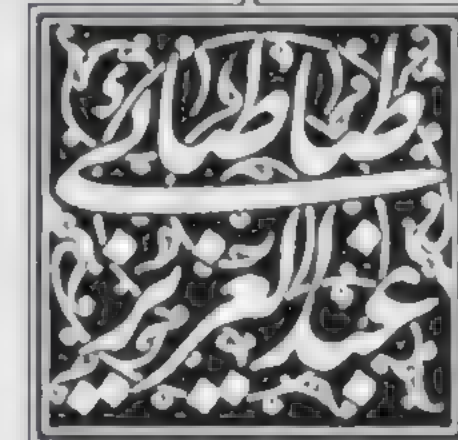 عبد العزيز
الطباطبائي